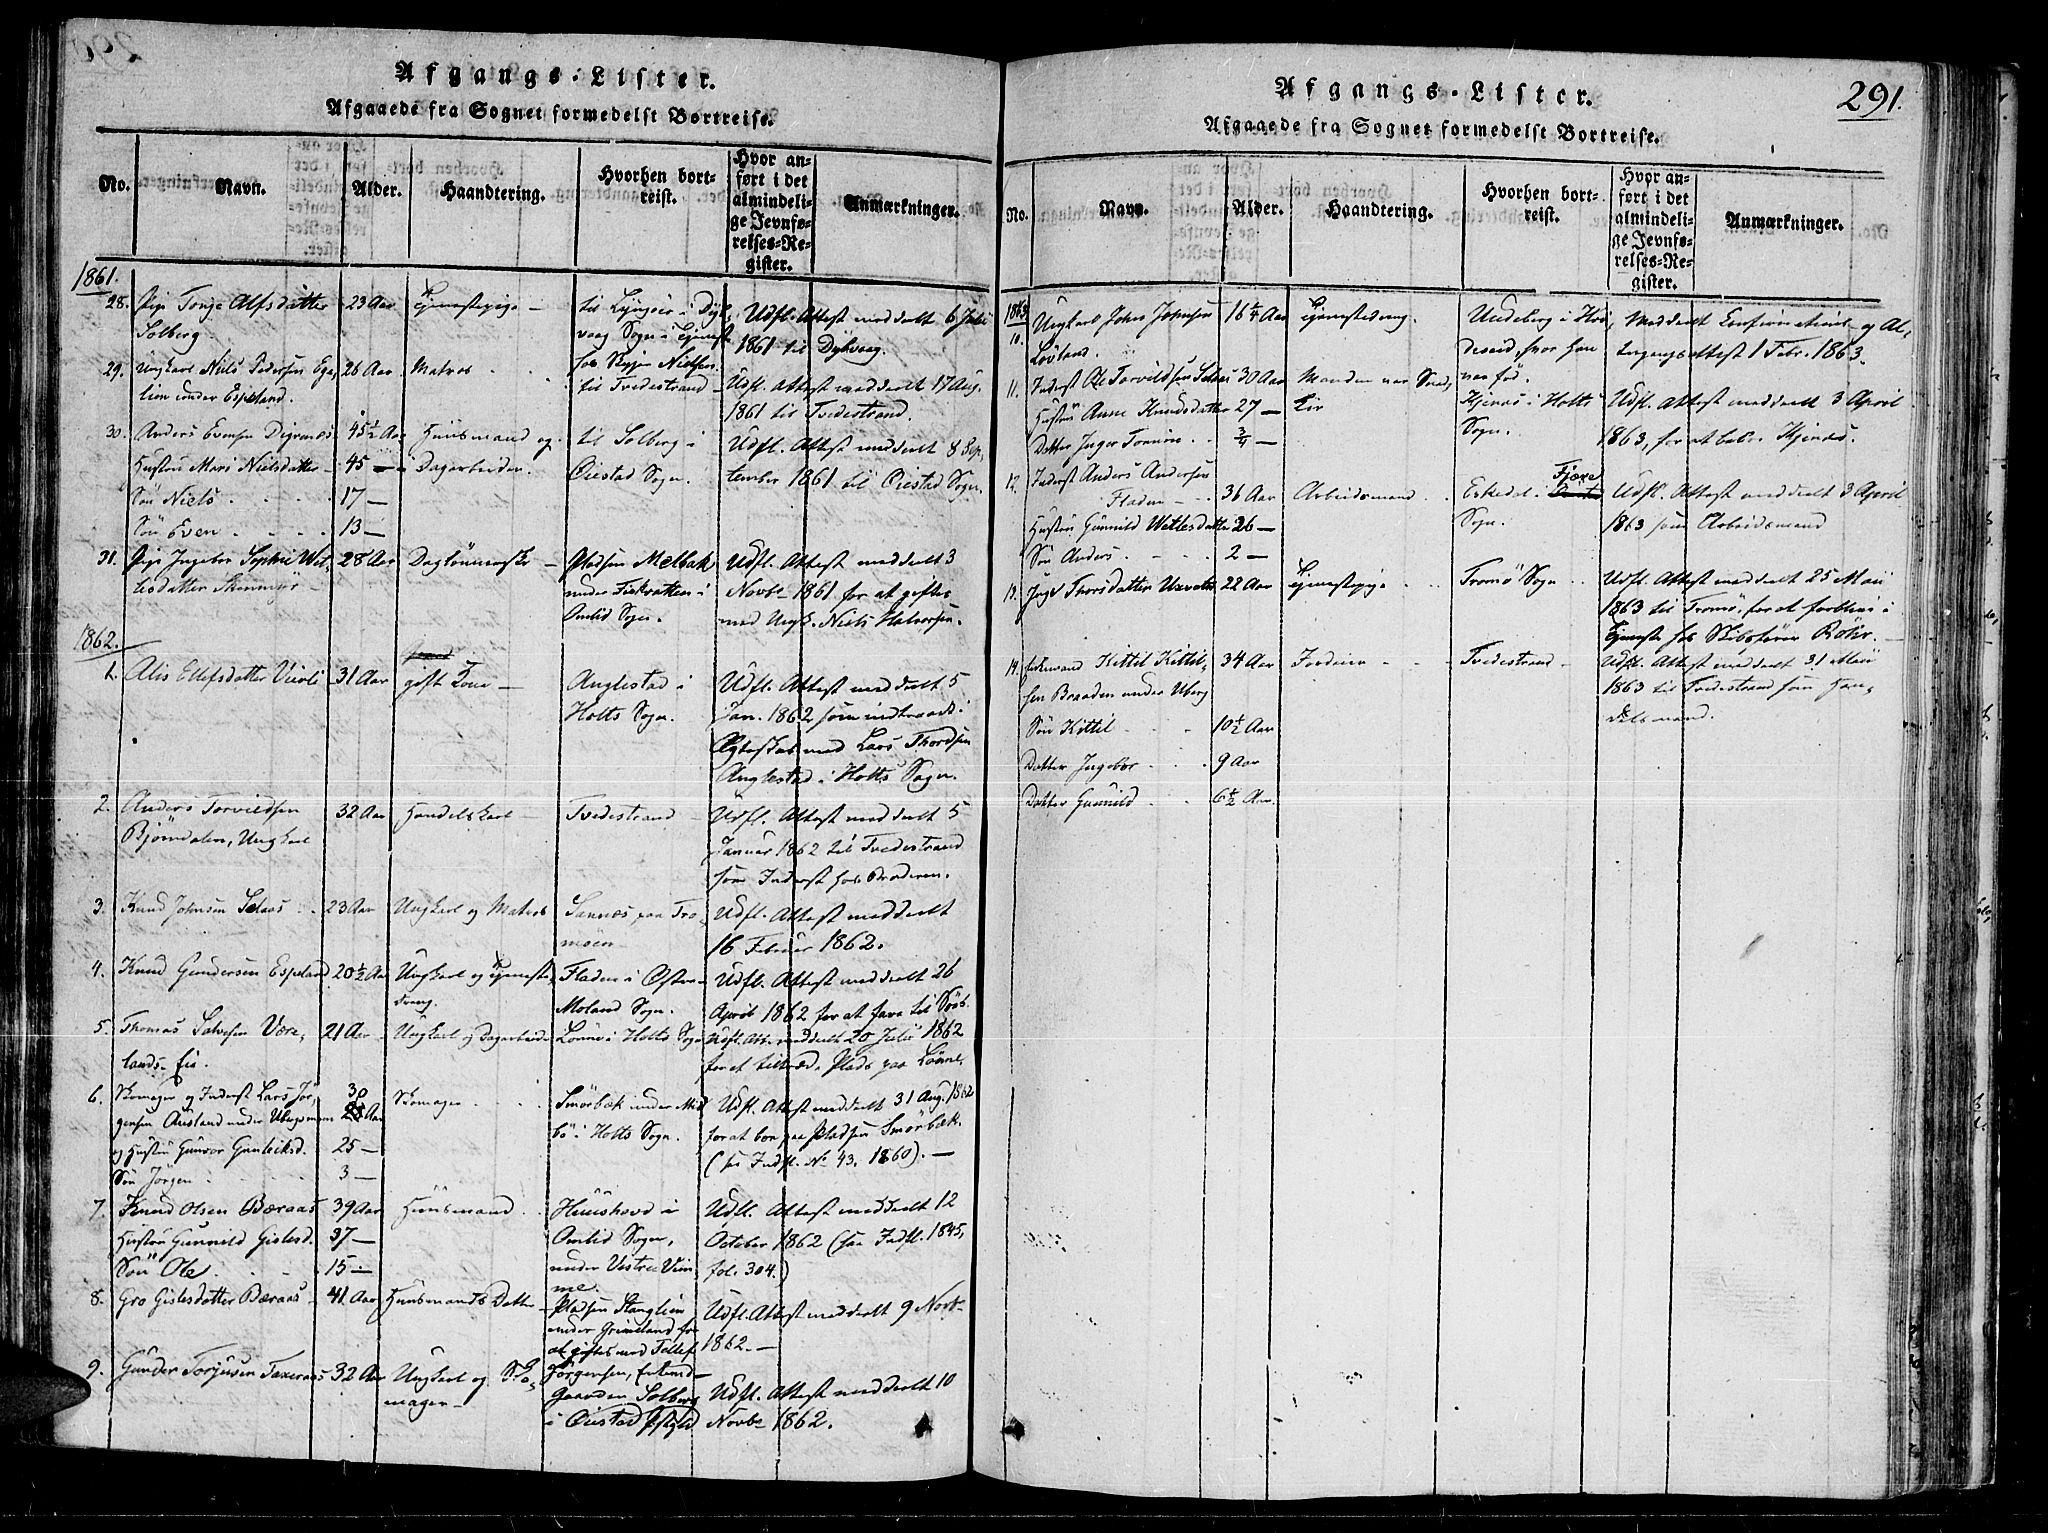 Afgangs-Lister.
Afgaaede fra Sognet formedelst Bortreise.
No.
Navn.
Alder.
Haandtering.
Hvorhen bort-
reist.
Hvor an-
ført i det
almindeli-
ge Jevnfø-
relses-Re-
gister.
Anmærkninger.
1861.
28. Pige Tonje Alfsdatter
Solberg
23 Aar
Tjenestepige
til Lyngøer i Dyb,
vaag Sogn i Tjeneste
hos Nielsen
Udfl. Attest meddeelt 6 Juli
1861 til Dybvaag.
29. Ungkarl Niels Pedersen Ege,
lien under Espeland.
26 Aar
Matros
til Tvedestrand
Udfl. Attest meddeelt 17 Aug.
1861 til Tvedestrand.
30. Anders Evensen Digernes
Hustru Mari Nielsdatter
Søn Niels
Søn Even
45½ Aar
45 —
17 —
13 —
Huusmand og
Dagarbeider.
til Solberg i
Øiestad Sogn.
Udfl. Attest meddeelt 8 Sep,
tember 1861 til Øiestad Sogn.
31. Pige Ingebor Sophie Wet,
lesdatter
28 Aar
Pladsen Melbak
under i
Omlid Sogn.
Udfl. Attest meddeelt 3
Novbr 1861 for at giftes
med Ungk. Niels Halvorsen.
1862.
1. Alis Ellefsdatter
31 Aar
gift Kone
Anglestad i
Holts Sogn.
Udfl. Attest meddeelt 5
Jan. 1862 som indtraadt i
Ægteskab med Lars Thordsen
Anglestad i Holts Sogn.
2. Anders Torvildsen
Bjørndalen, Ungkarl
32 Aar
Handelskarl
Tvedestrand
Udfl. Attest meddeelt 5
Januar 1862 til Tvedestrand
som Inderst hos Broderen.
3. Knud Johnsen Selaas
23 Aar
Ungkarl og Matros
Sannes paa Tro,
møen
Udfl. Attest meddeelt
16 Februar 1862.
4. Knud Gundersen Espeland
20½ Aar
Ungkarl og Tjeneste,
dreng.
Fladen i Øster
Moland Sogn.
Udfl. Attest meddeelt 26
April 1862 for at fare til Søes.
5. Thomas Salvesen Være,
lands-Eie.
21 Aar
Ungkarl og Dagarbeider
Lønne i Holts Sogn
Udfl. Att. meddeelt 20 Juli 1862
for at tiltræde Plads paa Lønne.
6. Skomager og Inderst Lars Jør,
gensen under
og Hustru Gunvor Gunleiksd.
Søn Jørgen
30
28 Aar
25 —
3 —
Skomager
Smørbæk under Mid
bø i Holts Sogn.
Udfl. Attest meddeelt 31 Aug. 1862
for at boe paa Pladsen Smørbæk.
(see Indfl. No 43. 1860).
7. Knud Olsen Bæraas
Hustru Gunnild Gislesd.
Søn Ole
39 Aar
37 —
15 —
Huusmand
Huushoved i
Omlid Sogn,
under Vestre Vim,
me.
Udfl. Attest meddeelt 12
October 1862 (see Indfl. 1845,
fol. 304.)
8. Gro Gislesdatter Bæraas
41 Aar
Huusmands Datter
Pladsen Stanglien
under Grimeland for
at giftes med Tellef
Jørgensen,
Udfl. Attest meddeelt 9 Novbr
1862.
9. Gunder Torjusen Taxeraas
32 Aar
Ungkarl og Sko,
mager
Gaarden Solberg
i Øiestad
Udfl. Attest meddeelt 10
Novbr 1862.
Afgangs-Lister.
291.
Afgaaede fra Sognet formedelst Bortreise.
No.
Navn.
Alder.
Haandtering.
Hvorhen bort-
reist.
Hvor an-
ført i det
almindeli-
ge Jevnfø-
relses-Re-
gister.
Anmærkninger.
1863
10. Ungkarl John Johnsen
Løvland.
16¼ Aar
Tjenestedreng.
Undeberg i Her,
, hvor han
var fød.
Meddeelt Confirmations- og Al,
tergangsattest 1 Febr. 1863.
11. Inderst Ole Torvildsen Selaas
Hustru Anne Knudsdatter
Datter Inger Tomine
30 Aar
27 —
¾ —
Manden var Sned,
ker
Kjenes i Holts
Sogn.
Udfl. Attest meddeelt 3 April
1863, for at beboe Kjenes.
12. Inderst Anders Andersen
Fladen
Hustru Gunnild Wetlesdatter
Søn Anders
36 Aar
26 —
2 —
Arbeidsmand
Eskedal Fjære
Sogn.
Udfl. Attest meddeelt 3 April
1863 som Arbeidsmand
13. Inger Thorsdatter
22 Aar
Tjenestepige
Tromø Sogn
Udfl. Attest meddeelt 25 Mai
1863 til Tromø, for at forblive i
Tjeneste hos Skibsfører
14. Enkemand Kittil Kittil,
sen Braaden under Uberg
Søn Kittil
Datter Ingebor
Datter Gunnild
34 Aar
10½ Aar
9 Aar
6½ Aar.
Tvedestrand
Udfl. Attest meddeelt 31 Mai
1863 til Tvedestrand som Han,
delsmand.